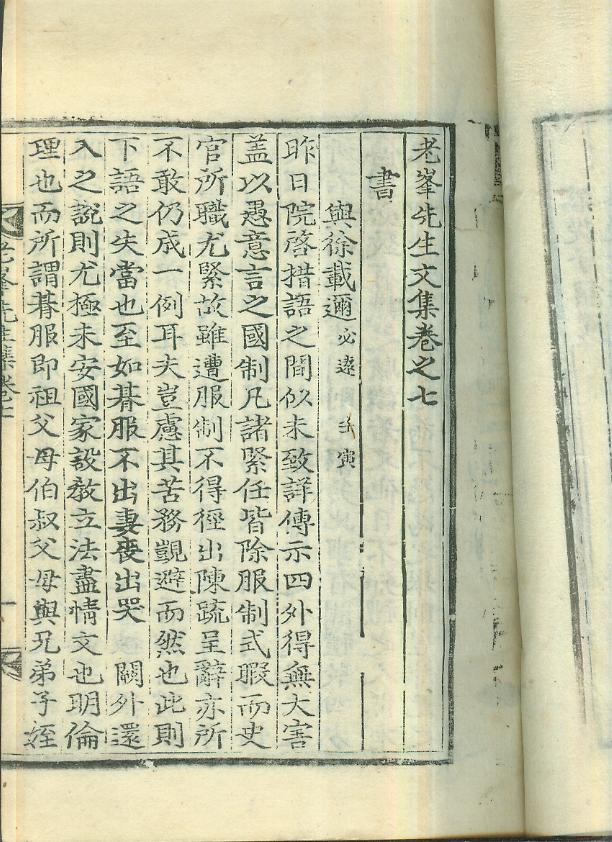 老峯先生文集卷之七
書
與徐載邇 必遠 壬寅
昨日院啓措語之間似未致詳傳示四外得無大害
盖以愚意言之國制凡諸緊任皆除服制式暇而史
官所職尤緊故雖遭服制不得徑出陳疏呈辭亦所
不敢仍成一例耳夫豈慮其苦務覬避而然也此則
下語之失當也至如朞服不出妻喪出哭 闕外還
入之說則尤極未安國家設敎立法盡情文也明倫
理也而所謂朞服即祖父母伯叔父母與兄弟子姪
老峯先生集卷七
一